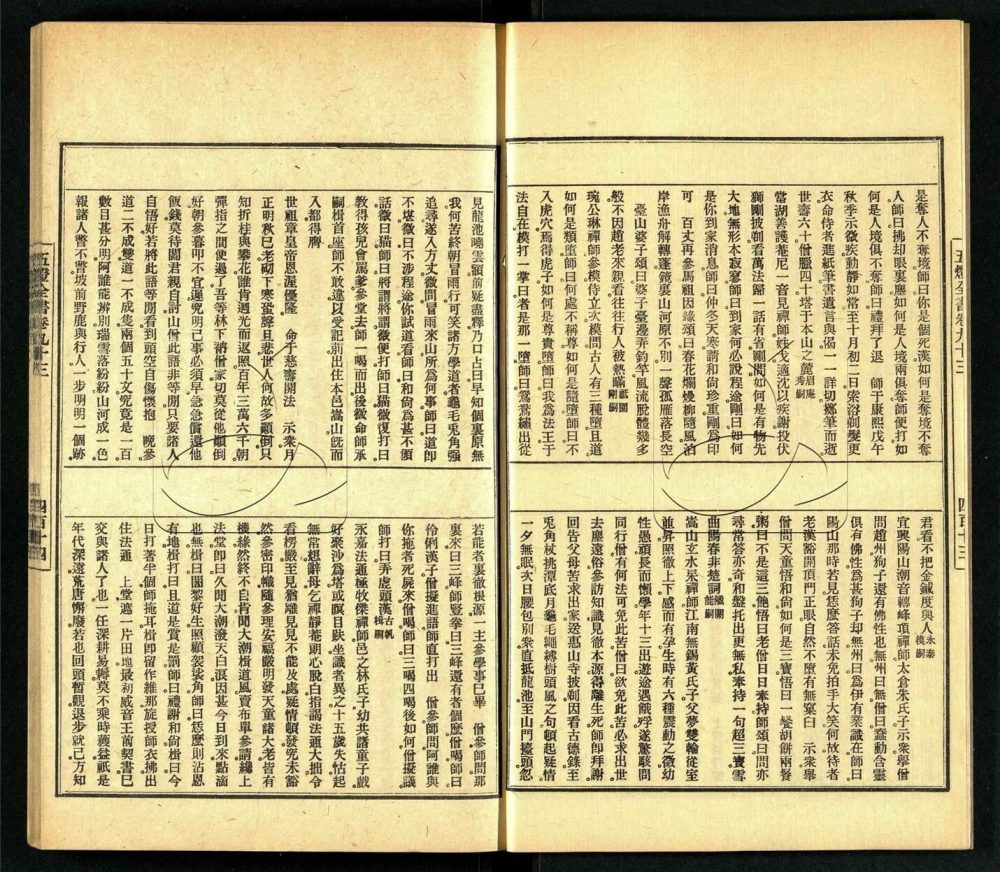 五燈全書卷九十三
四百十三
是奪人不奪境師曰你是個死漢如何是奪境不奪
人師曰拂却眼裏塵如何是人境兩俱奪師便打如
何是人境俱不奪師曰禮拜了退　師于康熙戊午
秋季示微疾動靜如常至十月初二日索浴剃髮更
衣命侍者進紙筆書遺言與偈一一詳切擲筆而逝
世壽六十僧臘四十塔于本山之麓眉庵秀嗣
當湖善護菴尼一音見禪師姓戈適沈以疾謝投伏
獅剛披剃看萬法歸一話有省剛問如何是有物先
大地無形本寂寥師曰到家何必說程途剛曰如何
是你到家消息師曰仲冬天寒請和尚珍重剛爲印
可　百丈再參馬祖因緣頌曰春花爛熳柳隨風泊
岸漁舟解轉蓬鏡裏山河原不別一聲孤雁落長空
　臺山婆子頌曰婆子臺邊弄釣竿風流脫體幾多
般不因趙老來親看往往行人被熱瞞祇園剛嗣
琬公琳禪師參模侍立次模問古人有三種墮且道
如何是類墮師曰何處不稱尊如何是隨墮師曰不
入虎穴焉得虎子如何是尊貴墮師曰我爲法王于
法自在模打一掌曰者是那一墮師曰鴛鴦繡出從
君看不把金鍼度與人永泰模嗣
宜興陽山潮音禪峰頂禪師太倉朱氏子示衆舉僧
問趙州狗子還有佛性也無州曰無僧曰蠢動含靈
俱有佛性爲甚狗子却無州曰爲伊有業識在師曰
陽山那時若見恁麼答話未免拍手大笑何故待者
老漢豁開頂門正眼自然不墮有無窠臼　示衆舉
僧問天童悟和尚如何是三寶悟曰一鬘胡餅兩餐
粥曰不是這三飽悟曰老僧日日奉持師頌曰問亦
尋常答亦奇和盤托出更無私奉持一句超三寶雪
曲陽春非楚詞
嵩山玄水杲禪師江南無錫黃氏子父夢雙輪從室
並昇照徹上下感而有孕生時有六種震動之徵幼
性愚頑長而慚學年十三出遊途遇餓殍遂驚駭問
同行僧有何法可免此苦僧曰欲免此苦必求出世
去塵遠俗參訪知識見徹本源得離生死師即拜謝
回告父母苦求出家送惠山寺披剃因看古德錄至
兎角杖挑潭底月龜毛繩縛樹頭風之句頓起疑情
一夕無眠次日腰包別衆直抵龍池至山門擡頭忽
見龍池曉雲頷前疑盡釋乃口占曰早知個裏原無
我何苦終朝冒雨行可笑諸方學道者龜毛兎角强
追尋遂入方丈微問冒雨來山所爲何事師曰道即
不堪微曰不涉程途你試道看師曰和尚爲甚不領
話微曰貓師曰將謂將謂微便打師曰貓微復打曰
教得孩兒會罵爹爹堂去師一喝而出後微命師承
嗣楫首座師不敢違以受記莂出住本邑嵩山旣而
入都得膺
世祖章皇帝恩渥優隆　命于慈壽開法　示衆月
正明秋巳老砌下寒蛩聲且悲世人何故多顚倒只
知折桂與攀花誰肯迴光而返照百年三萬六千朝
彈指之間便過了吾等林下衲僧家切莫從他顚倒
好朝參暮叩不宜遲究明己事必須早急急償還他
飯錢莫待閻君親自討山僧此語非等閒只要諸人
自悟好若將此語等閒看到頭空自傷懷抱　晚參
道二不成雙道一不成隻兩個五十文究竟是一百
數目甚分明阿誰能辨別瑞雪落紛紛山河成一色
報諸人瞥不瞥坡前野鹿與行人一步明明一個跡
若能者裏徹根源一主參學事已畢　僧參師問那
裏來曰三峰師竪拳曰三峰還有者個麼僧喝師曰
伶俐漢子僧擬進語師直打出　僧參師問阿誰與
你拖者死屍來僧喝師曰三喝四喝後如何僧擬議
師打曰弄虛頭漢古帆楫嗣
永嘉法通極牧傑禪師邑之林氏子幼共諸童子戲
好聚沙爲塔或瞑目趺坐識者異之十五歲失怙起
無常想辭母乞禪靜菴剃心脫白指謁法通大拙令
看楞嚴至見猶離見見不能及處疑情頓發究未豁
然參密印幟隨參理安福嚴明發天童諸大老皆有
機緣然終不自肯聞大潮楫道風賣布單參請纔上
法堂即曰久聞大潮潑天白浪因甚今日到來點滴
也無楫曰闍黎好生照顧袈裟角師曰恁麼則沾恩
有地楫打曰且道是賞是罰師曰禮謝和尚楫曰今
日打著半個師掩耳楫即留作維那旋授師衣拂出
住法通　上堂遮一片田地最初威音王前契書已
交與諸人了也一任深耕易耨莫不乘時獲益祇是
年代深遠荒唐懈廢若也回頭暫觀退步就己方知
五燈全書卷九十三
四百十四